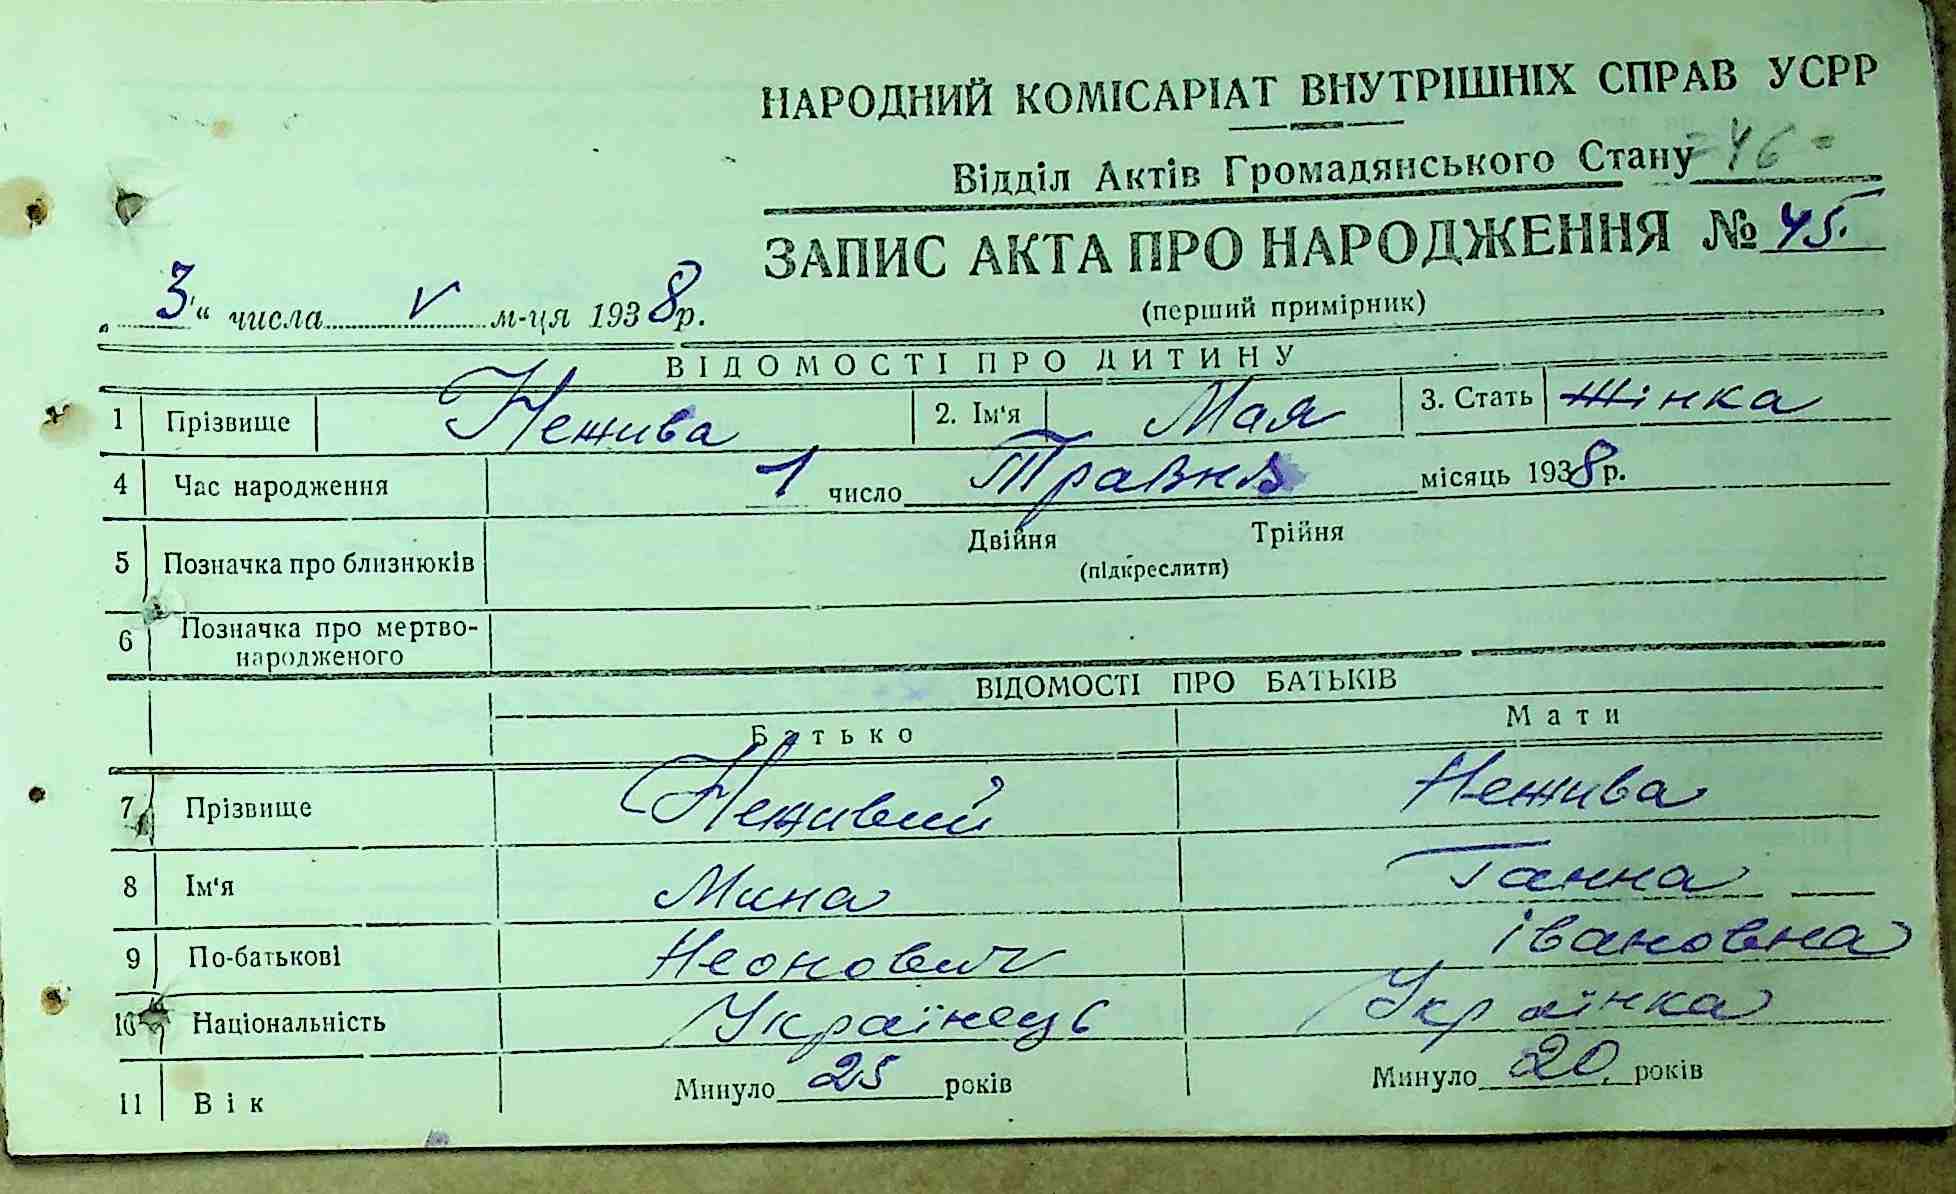 НАРОДНИЙ КОМІСАРІАТ ВНУТРІШНІХ СПРАВ УСРР
Відділ Актів Громадянського Стану - 46 -
ЗАПИС АКТА ПРО НАРОДЖЕННЯ № 45.
(перший примірник)
„ 3 “ числа V м-ця 1938 р.
ВІДОМОСТІ ПРО ДИТИНУ
1 Прізвище Нежива 2. Ім'я Мая 3. Стать жінка
4 Час народження 1 число Травня місяць 1938 р.
5 Позначка про близнюків Двійня Трійня
(підкреслити)
6 Позначка про мертво-
народженого
ВІДОМОСТІ ПРО БАТЬКІВ
Батько Мати
7 Прізвище Неживий Нежива
8 Ім'я Мина Ганна
9 По-батькові Неонович івановна
10 Національність Українець Українка
11 Вік Минуло 25 років Минуло 20 років